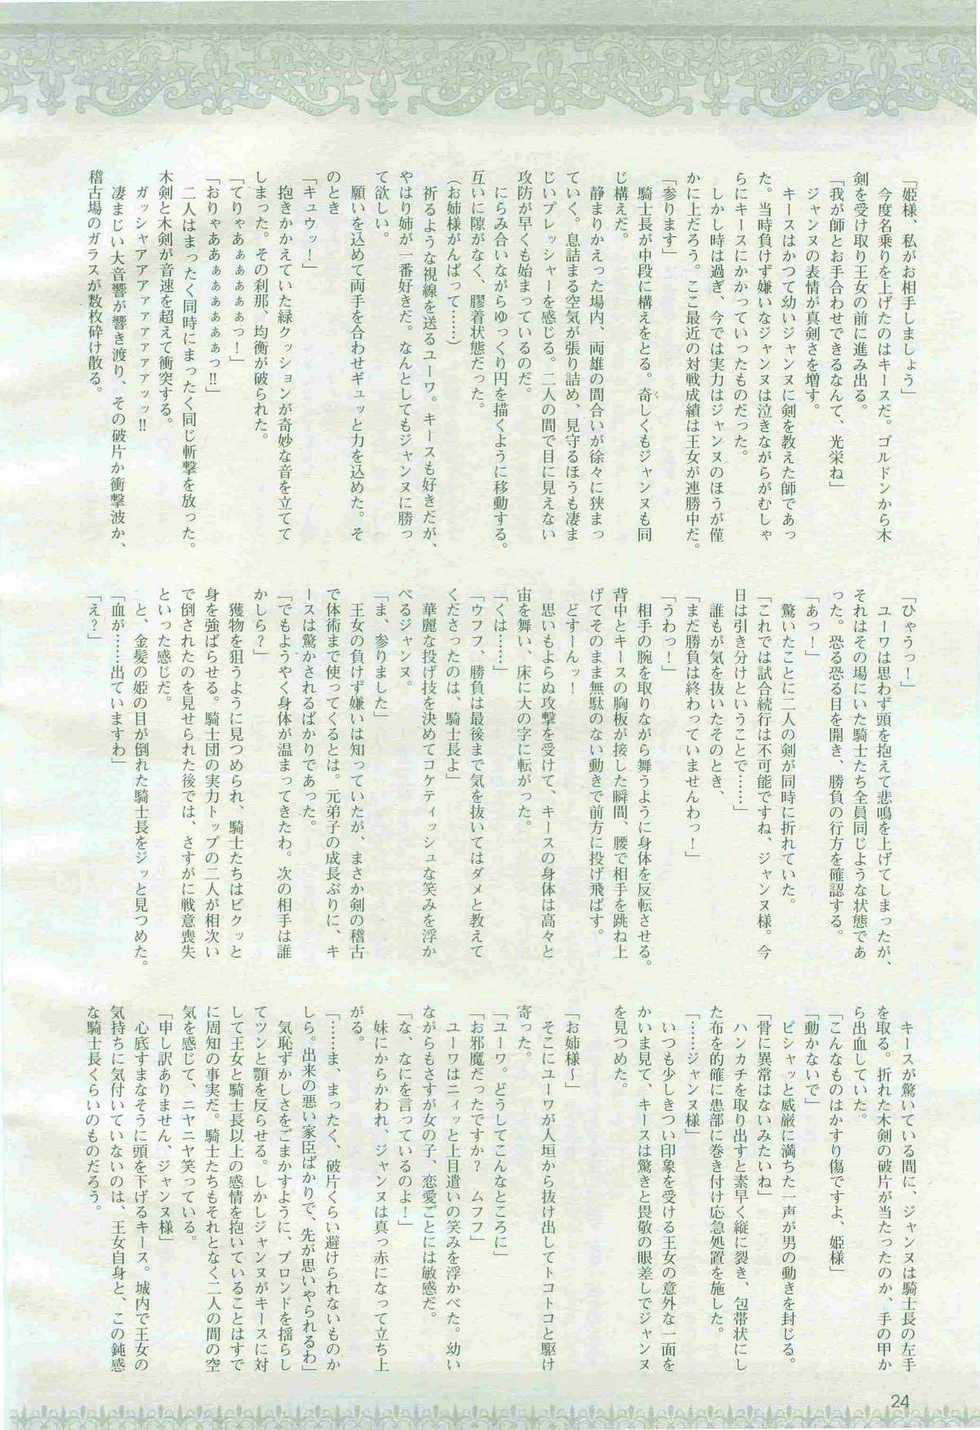 「姫様、私がお相手しましょう」
　今度名乗りを上げたのはキースだ。ゴルドンから木
剣を受け取り王女の前に進み出る。
「我が師とお手合わせできるなんて、光栄ね」
　ジャンヌの表情が真剣さを増す。
　キースはかつて幼いジャンヌに剣を教えた師であっ
た。当時負けず嫌いなジャンヌは泣きながらがむしゃ
らにキースにかかっていったものだった。
　しかし時は過ぎ、今では実力はジャンヌのほうが僅
かに上だろう。ここ最近の対戦成績は王女が連勝中だ。
「参ります」
　騎士長が中段に構えをとる。奇しくもジャンヌも同
じ構えだ。
　静まりかえった場内、両雄の間合いが徐々に狭まっ
ていく。息詰まる空気が張り詰め、見守るほうも凄ま
じいプレッシャーを感じる。二人の間で目に見えない
攻防が早くも始まっているのだ。
　にらみ合いながらゆっくり円を描くように移動する。
互いに隙がなく、膠着状態だった。
（お姉様がんばって……）
　祈るような視線を送るユーワ。キースも好きだが、
やはり姉が一番好きだ。なんとしてもジャンヌに勝っ
て欲しい。
　願いを込めて両手を合わせギュッと力を込めた。そ
のとき
「キュウッ！」
　抱きかかえていた緑クッションが奇妙な音を立てて
しまった。その刹那、均衡が破られた。
「てりゃあぁぁぁぁぁっ！」
「おりゃああぁぁぁぁぁぁっ!!」
　二人はまったく同時にまったく同じ斬撃を放った。
木剣と木剣が音速を超えて衝突する。
　ガッシャアアアァァァァァァッッ!!
　凄まじい大音響が響き渡り、その破片か衝撃波か、
稽古場のガラスが数枚砕け散る。
「ひゃうっ！」
　ユーワは思わず頭を抱えて悲鳴を上げてしまったが、
それはその場にいた騎士たち全員同じような状態であ
った。恐る恐る目を開き、勝負の行方を確認する。
「あっ！」
　驚いたことに二人の剣が同時に折れていた。
「これでは試合続行は不可能ですね、ジャンヌ様。今
日は引き分けということで……」
　誰もが気を抜いたそのとき、
「まだ勝負は終わっていませんわっ！」
「うわっ！」
　相手の腕を取りながら舞うように身体を反転させる。
背中とキースの胸板が接した瞬間、腰で相手を跳ね上
げてそのまま無駄のない動きで前方に投げ飛ばす。
　どすーんッ！
　思いもよらぬ攻撃を受けて、キースの身体は高々と
宙を舞い、床に大の字に転がった。
「くは……」
「ウフフ、勝負は最後まで気を抜いてはダメと教えて
くださったのは、騎士長よ」
　華麗な投げ技を決めてコケティッシュな笑みを浮か
べるジャンヌ。
「ま、参りました」
　王女の負けず嫌いは知っていたが、まさか剣の稽古
で体術まで使ってくるとは。元弟子の成長ぶりに、キ
ースは驚かされるばかりであった。
「でもようやく身体が温まってきたわ。次の相手は誰
かしら？」
　獲物を狙うように見つめられ、騎士たちはビクッと
身を強ばらせる。騎士団の実力トップの二人が相次い
で倒されたのを見せられた後では、さすがに戦意喪失
といった感じだ。
　と、金髪の姫の目が倒れた騎士長をジッと見つめた。
「血が……出ていますわ」
「え？」
　キースが驚いている間に、ジャンヌは騎士長の左手
を取る。折れた木剣の破片が当たったのか、手の甲か
ら出血していた。
「こんなものはかすり傷ですよ、姫様」
「動かないで」
　ピシャッと威厳に満ちた一声が男の動きを封じる。
「骨に異常はないみたいね」
　ハンカチを取り出すと素早く縦に裂き、包帯状にし
た布を的確に患部に巻き付け応急処置を施した。
「……ジャンヌ様」
　いつも少しきつい印象を受ける王女の意外な一面を
かいま見て、キースは驚きと畏敬の眼差しでジャンヌ
を見つめた。
「お姉様〜」
　そこにユーワが人垣から抜け出してトコトコと駆け
寄った。
「ユーワ。どうしてこんなところに」
「お邪魔だったですか？　ムフフ」
　ユーワはニィッと上目遣いの笑みを浮かべた。幼い
ながらもさすが女の子、恋愛ごとには敏感だ。
「な、なにを言っているのよ！」
　妹にからかわれ、ジャンヌは真っ赤になって立ち上
がる。
「……ま、まったく、破片くらい避けられないものか
しら。出来の悪い家臣ばかりで、先が思いやられるわ」
　気恥ずかしさをごまかすように、ブロンドを揺らし
てツンと顎を反らせる。しかしジャンヌがキースに対
して王女と騎士長以上の感情を抱いていることはすで
に周知の事実だ。騎士たちもそれとなく二人の間の空
気を感じて、ニヤニヤ笑っている。
「申し訳ありません、ジャンヌ様」
　心底すまなそうに頭を下げるキース。城内で王女の
気持ちに気付いていないのは、王女自身と、この鈍感
な騎士長くらいのものだろう。
24